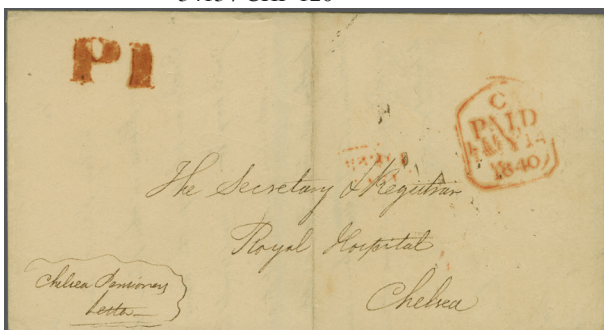 P1
C
PAID
MY 14
1840
The Secretary & Registrar
Royal Hospital
Chelsea
Chelsea Pensioners
Letter